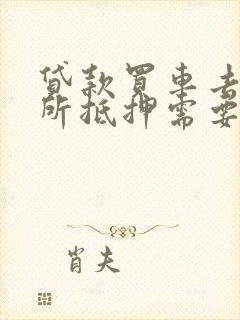 贷款买车去
所抵押需要
肖夫